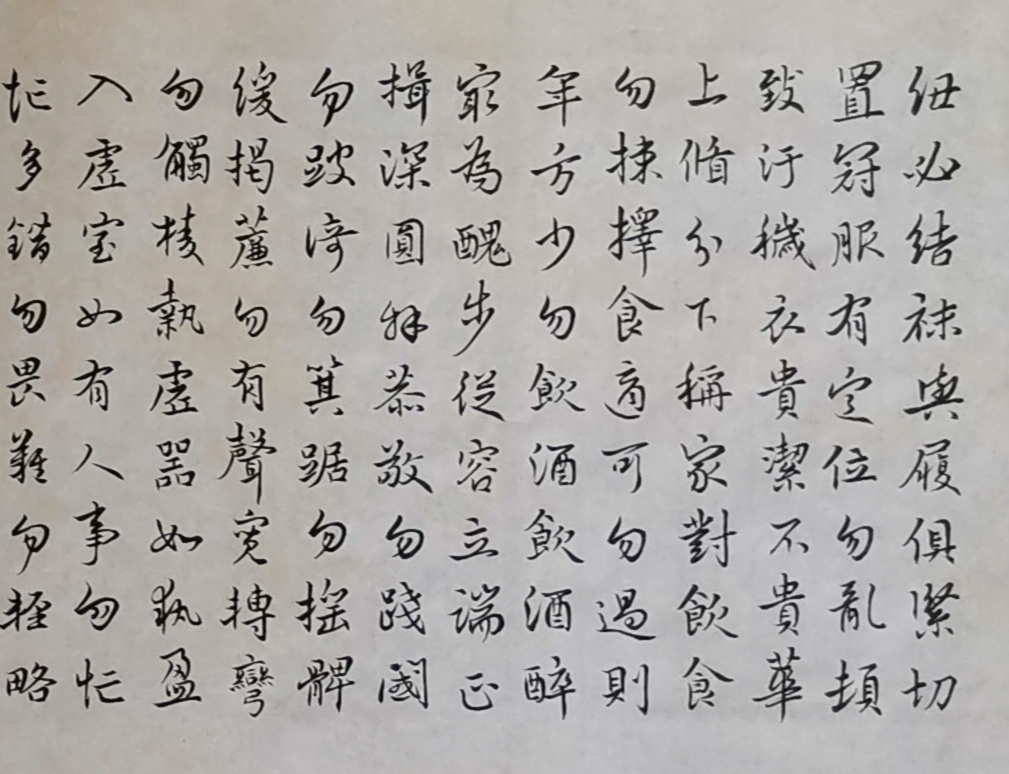 紐必結襪與履俱緊切
置冠服有定位勿亂頓
致汙穢衣貴潔不貴華
上循分下稱家對飲食
勿揀擇食適可勿過則
年方少勿飲酒飲酒醉
最為醜步從容立端正
揖深圓拜恭敬勿踐閾
勿跛倚勿箕踞勿搖髀
緩揭簾勿有聲寬轉彎
勿觸棱執虛器如執盈
入虛室如有人事勿忙
忙多錯勿畏難勿輕略